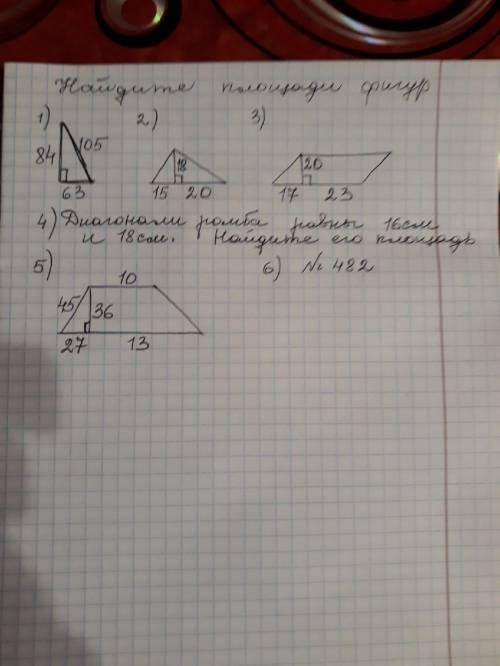 Найдите площади фигур
1) 2) 3)
84 105 18 20
63 15 20 17 23
4) Диагонали ромба равны 16см
и 18см. Найдите его площадь
5) 6) № 482
10
45 36
27 13